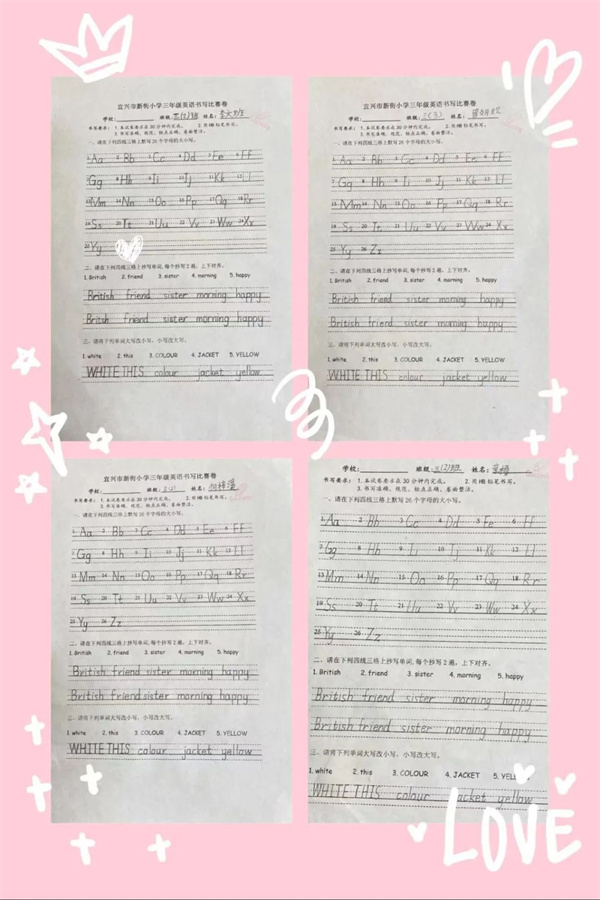 宜兴市新街小学三年级英语书写比赛卷
学校: 班级: 姓名:
书写要求: 1. 本试卷要求在 30 分钟内完成。 2. 用 HB 铅笔书写。
3. 书写准确、规范,标点正确,卷面整洁。
一、请在下列四线三格上默写 26 个字母的大小写。
1 Aa 2 Bb 3 Cc 4 Dd 5 Ee 6 Ff
7 Gg 8 Hh 9 Ii 10 Jj 11 Kk 12 Ll
13 Mm 14 Nn 15 Oo 16 Pp 17 Qq 18 Rr
19 Ss 20 Tt 21 Uu 22 Vv 23 Ww 24 Xx
25 Yy
二、请在下列四线三格上抄写单词,每个抄写 2 遍,上下对齐。
1. British 2. friend 3. sister 4. morning 5. happy
British friend sister morning happy
Britsh friend sister morning happy
三、请将下列单词大写改小写,小写改大写。
1. white 2. this 3. COLOUR 4. JACKET 5. YELLOW
WHITE THIS colour jacket yellow
宜兴市新街小学三年级英语书写比赛卷
学校: 班级: 三(3) 姓名:
书写要求: 1. 本试卷要求在 30 分钟内完成。 2. 用 HB 铅笔书写。
3. 书写准确、规范,标点正确,卷面整洁。
一、请在下列四线三格上默写 26 个字母的大小写。
1 Aa 2 Bb 3 Cc 4 Dd 5 Ee 6 Ff
7 Gg 8 Hh 9 Ii 10 Jj 11 Kk 12 Ll
13 Mm 14 Nn 15 Oo 16 Pp 17 Qq 18 Rr
19 Ss 20 Tt 21 Uu 22 Vv 23 Ww 24 Xx
25 Yy 26 Zz
二、请在下列四线三格上抄写单词,每个抄写 2 遍,上下对齐。
1. British 2. friend 3. sister 4. morning 5. happy
British friend sister morning happy
British friend sister morning happy
三、请将下列单词大写改小写,小写改大写。
1. white 2. this 3. COLOUR 4. JACKET 5. YELLOW
WHITE THIS colour jacket yellow
宜兴市新街小学三年级英语书写比赛卷
学校: 班级: 姓名:
书写要求: 1. 本试卷要求在 30 分钟内完成。 2. 用 HB 铅笔书写。
3. 书写准确、规范,标点正确,卷面整洁。
一、请在下列四线三格上默写 26 个字母的大小写。
1 Aa 2 Bb 3 Cc 4 Dd 5 Ee 6 Ff
7 Gg 8 Hh 9 Ii 10 Jj 11 Kk 12 Ll
13 Mm 14 Nn 15 Oo 16 Pp 17 Qq 18 Rr
19 Ss 20 Tt 21 Uu 22 Vv 23 Ww 24 Xx
25 Yy 26 Zz
二、请在下列四线三格上抄写单词,每个抄写 2 遍,上下对齐。
1. British 2. friend 3. sister 4. morning 5. happy
British friend sister morning happy
British friend sister morning happy
三、请将下列单词大写改小写,小写改大写。
1. white 2. this 3. COLOUR 4. JACKET 5. YELLOW
WHITE THIS colour jacket yellow
学校: 班级: 三(2)班 姓名:
书写要求: 1. 本试卷要求在 30 分钟内完成。 2. 用 HB 铅笔书写。
3. 书写准确、规范,标点正确,卷面整洁。
一、请在下列四线三格上默写 26 个字母的大小写。
1 Aa 2 Bb 3 Cc 4 Dd 5 Ee 6 Ff
7 Gg 8 Hh 9 Ii 10 Jj 11 Kk 12 Ll
13 Mm 14 Nn 15 Oo 16 Pp 17 Qq 18 Rr
19 Ss 20 Tt 21 Uu 22 Vv 23 Ww 24 Xx
25 Yy 26 Zz
二、请在下列四线三格上抄写单词,每个抄写 2 遍,上下对齐。
1. British 2. friend 3. sister 4. morning 5. happy
British friend sister morning happy
British friend sister morning happy
三、请将下列单词大写改小写,小写改大写。
1. white 2. this 3. COLOUR 4. JACKET 5. YELL
WHITE THIS colour jacket yellow
LOVE